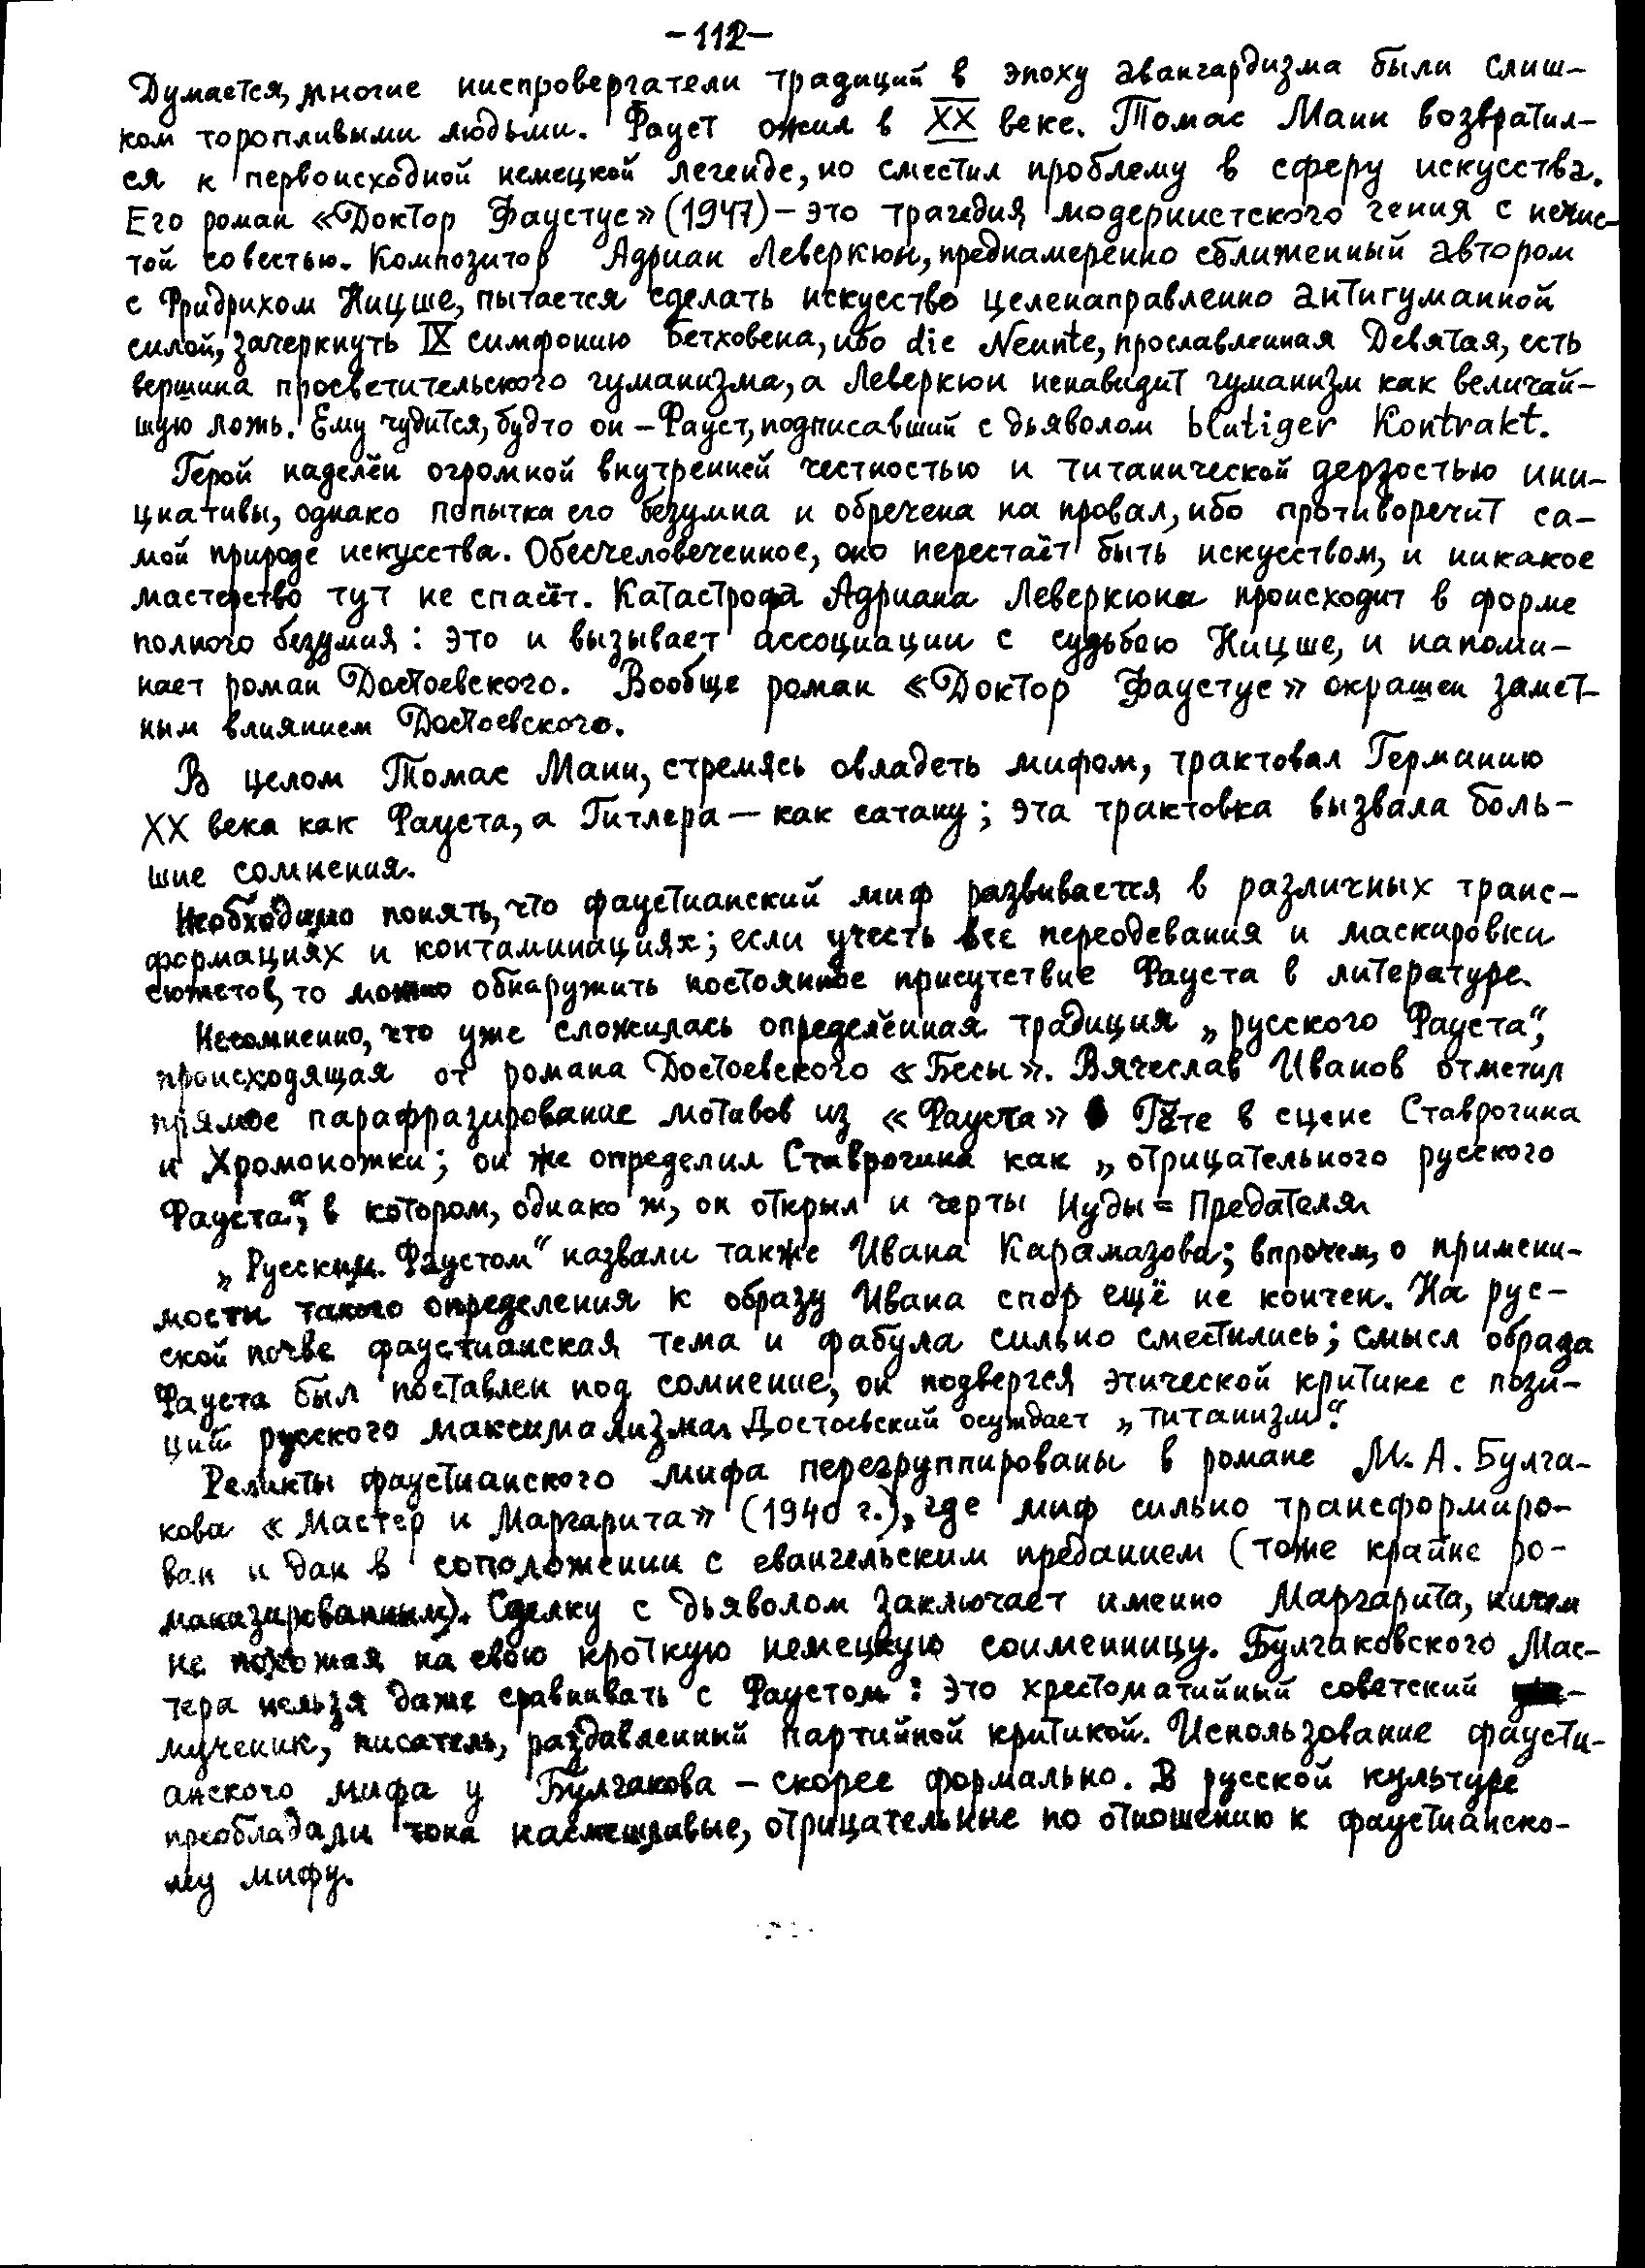 -112-
Думается, многие ниспровергатели традиций в эпоху авангардизма были слиш-
ком торопливыми людьми. Фауст ожил в XX веке. Томас Манн возвратил-
ся к первоисходной немецкой легенде, но сместил проблему в сферу искусства.
Его роман «Доктор Фаустус» (1947) – это трагедия модернистского гения с нечис-
той совестью. Композитор Адриан Леверкюн, преднамеренно сближенный автором
с Фридрихом Ницше, пытается сделать искусство целенаправленно антигуманной
силой, зачеркнуть IX симфонию Бетховена, ибо die Neunte, прославленная Девятая, есть
вершина просветительского гуманизма, а Леверкюн ненавидит гуманизм как величай-
шую ложь. Ему чудится, будто он – Фауст, подписавший с дьяволом blutiger Kontrakt.
Герой наделён огромной внутренней честностью и титанической дерзостью ини-
циативы, однако попытка его безумна и обречена на провал, ибо противоречит са-
мой природе искусства. Обесчеловеченное, оно перестаёт быть искусством, и никакое
мастерство тут не спасёт. Катастрофа Адриана Леверкюна происходит в форме
полного безумия: это и вызывает ассоциации с судьбою Ницше, и напоми-
нает роман Достоевского. Вообще роман «Доктор Фаустус» окрашен замет-
ным влиянием Достоевского.
В целом Томас Манн, стремясь овладеть мифом, трактовал Германию
XX века как Фауста, а Гитлера – как сатану; эта трактовка вызвала боль-
шие сомнения.
Необходимо понять, что фаустианский миф развивается в различных транс-
формациях и контаминациях; если учесть все переодевания и маскировки
сюжетов, то можно обнаружить постоянное присутствие Фауста в литературе.
Несомненно, что уже сложилась определённая традиция „русского Фауста“,
происходящая от романа Достоевского «Бесы». Вячеслав Иванов отметил
прямое парафразирование мотивов из «Фауста» Гёте в сцене Ставрогина
и Хромоножки; он же определил Ставрогина как „отрицательного русского
Фауста“, в котором, однако ж, он открыл и черты Иуды = Предателя.
„Русским Фаустом“ назвали также Ивана Карамазова; впрочем, о примени-
мости такого определения к образу Ивана спор ещё не кончен. На рус-
ской почве фаустианская тема и фабула сильно сместились; смысл образа
Фауста был поставлен под сомнение, он подвергся этической критике с пози-
ций русского максимализма. Достоевский осуждает „титанизм“.
Реликты фаустианского мифа перегруппированы в романе М. А. Булга-
кова «Мастер и Маргарита» (1940 г.), где миф сильно трансформиро-
ван и дан в соположении с евангельским преданием (тоже крайне ро-
манизированным). Сделку с дьяволом заключает именно Маргарита, ничем
не похожая на свою кроткую немецкую соименницу. Булгаковского Мас-
тера нельзя даже сравнивать с Фаустом: это хрестоматийный советский
мученик, писатель, раздавленный партийной критикой. Использование фаусти-
анского мифа у Булгакова – скорее формально. В русской культуре
преобладали тона насмешливые, отрицательные по отношению к фаустианско-
му мифу.